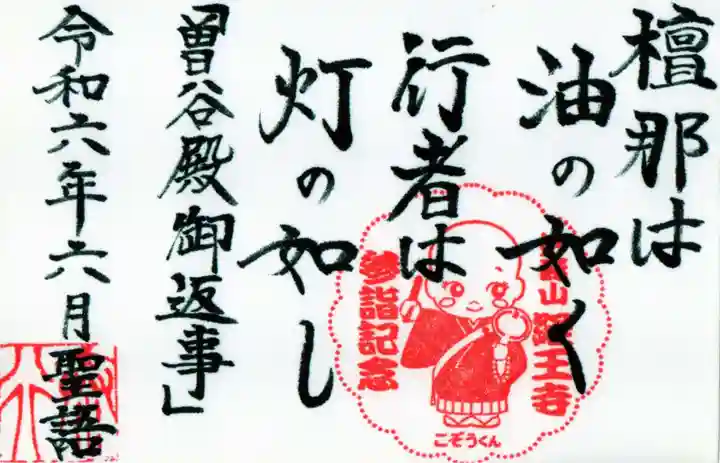 檀那は
油の如く
行者は
灯の如し
「曽谷殿御返事」
令和六年六月聖語
参詣記念
王寺
こぞうくん